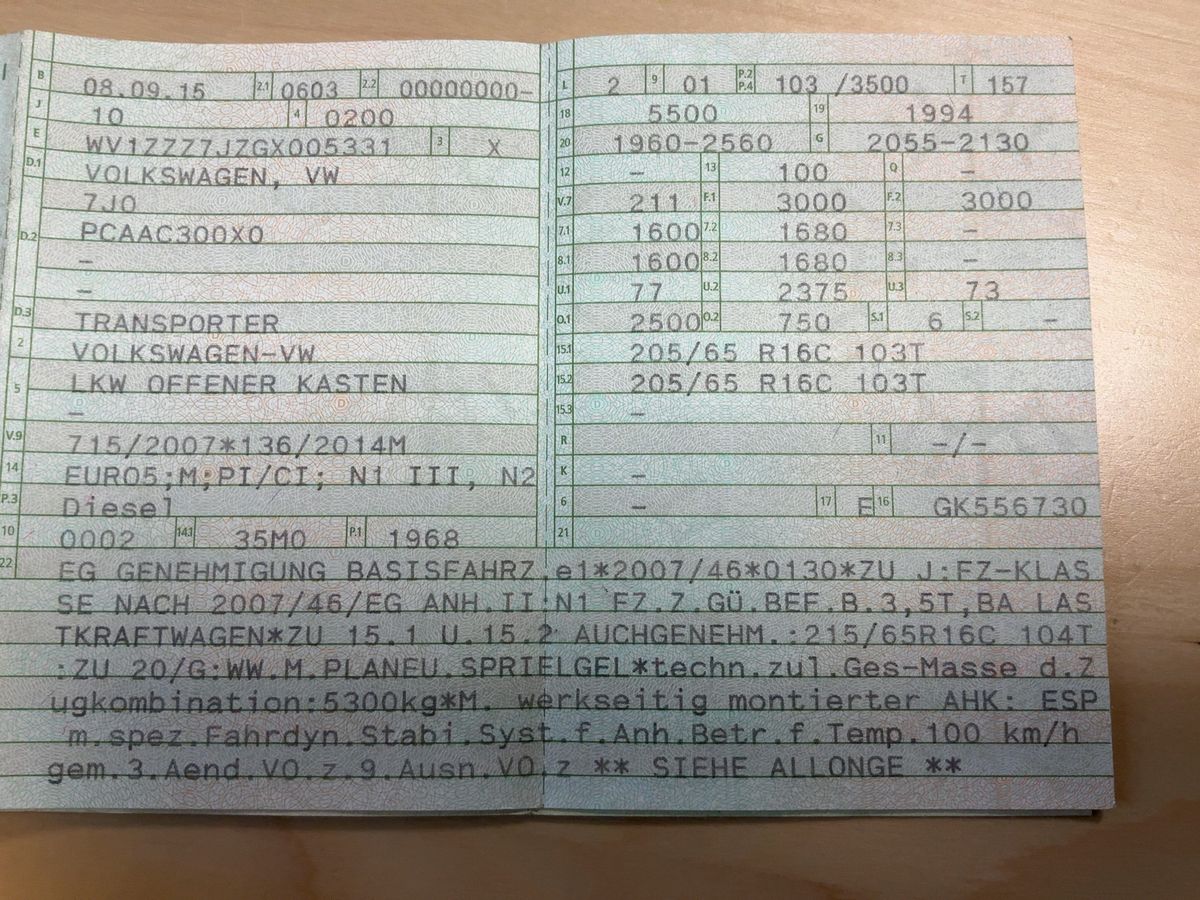 B 08.09.15 2.1 0603 2.2 00000000-
J 10 4 0200
E WV1ZZZ7JZGX005331 3 X
D.1 VOLKSWAGEN, VW
7J0
D.2 PCAAC300X0
-
-
D.3 TRANSPORTER
2 VOLKSWAGEN-VW
5 LKW OFFENER KASTEN
-
V.9 715/2007*136/2014M
14 EURO5;M;PI/CI; N1 III, N2
P.3 Diesel
10 0002 14.1 35M0 P.1 1968
L 2 9 01 P.2 P.4 103 /3500 T 157
18 5500 19 1994
20 1960-2560 G 2055-2130
12 - 13 100 Q -
V.7 211 F.1 3000 F.2 3000
7.1 1600 7.2 1680 7.3 -
8.1 1600 8.2 1680 8.3 -
U.1 77 U.2 2375 U.3 73
O.1 2500 O.2 750 S.1 6 S.2 -
15.1 205/65 R16C 103T
15.2 205/65 R16C 103T
15.3 -
R 11 -/-
K -
6 - 17 E 16 GK556730
21
22 EG GENEHMIGUNG BASISFAHRZ.e1*2007/46*0130*ZU J:FZ-KLAS
SE NACH 2007/46/EG ANH.II:N1 FZ.Z.GÜ.BEF.B.3,5T,BA LAS
TKRAFTWAGEN*ZU 15.1 U.15.2 AUCHGENEHM.:215/65R16C 104T
:ZU 20/G:WW.M.PLANEU.SPRIELGEL*techn.zul.Ges-Masse d.Z
ugkombination:5300kg*M. werkseitig montierter AHK: ESP
m.spez.Fahrdyn.Stabi.Syst.f.Anh.Betr.f.Temp.100 km/h
gem.3.Aend.VO.z.9.Ausn.VO.z ** SIEHE ALLONGE **